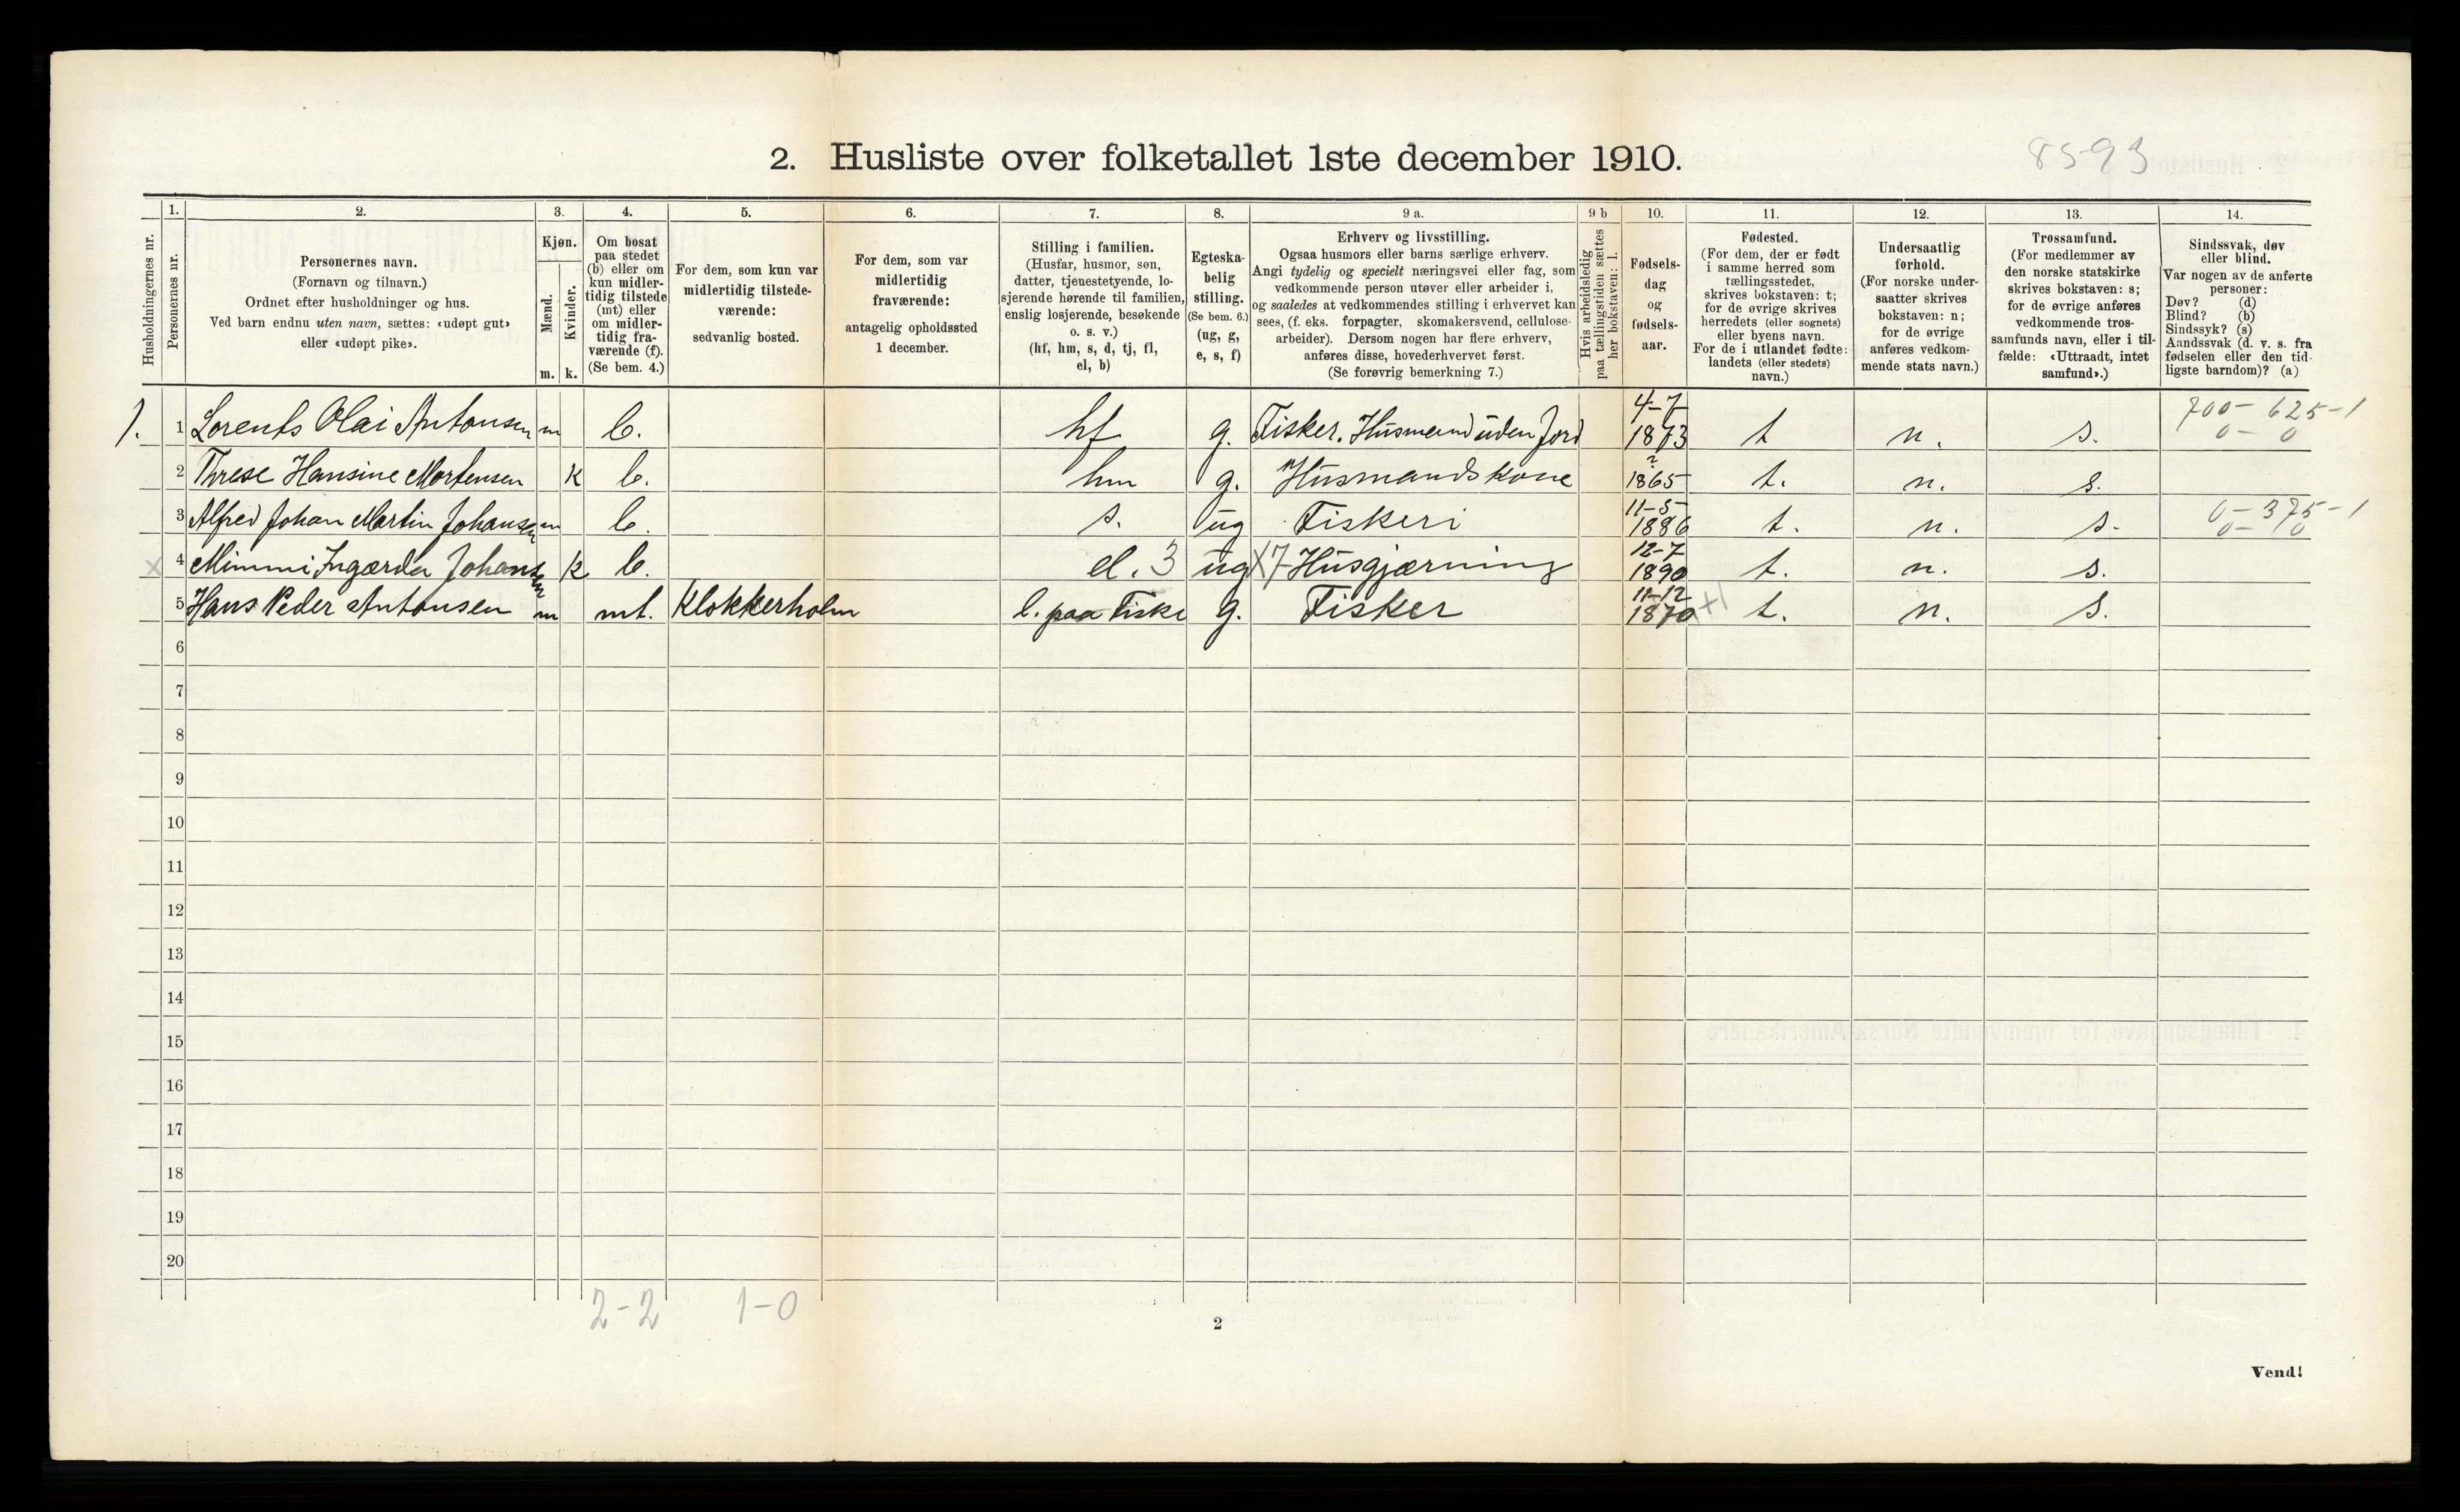 2. Husliste over folketallet 1ste december 1910.
85-93
Husholdningernes nr.
1.
Personernes nr.
2.
Personernes navn.
(Fornavn og tilnavn.)
Ordnet efter husholdninger og hus.
Ved barn endnu uten navn, sættes: «udøpt gut»
eller «udøpt pike».
3.
Kjøn.
Mænd.
Kvinder.
m. k.
4.
Om bosat
paa stedet
(b) eller om
kun midler-
tidig tilstede
(mt) eller
om midler-
tidig fra-
værende (f).
(Se bem. 4.)
5.
For dem, som kun var
midlertidig tilstede-
værende:
sedvanlig bosted.
6.
For dem, som var
midlertidig
fraværende:
antagelig opholdssted
1 december.
7.
Stilling i familien.
(Husfar, husmor, søn,
datter, tjenestetyende, lo-
sjerende hørende til familien,
enslig losjerende, besøkende
o. s. v.)
(hf, hm, s, d, tj, fl,
el, b)
8.
Egteska-
belig
stilling.
(Se bem. 6.)
(ug, g,
e, s, f)
9 a.
Erhverv og livsstilling.
Ogsaa husmors eller barns særlige erhverv.
Angi tydelig og specielt næringsvei eller fag, som
vedkommende person utøver eller arbeider i,
og saaledes at vedkommendes stilling i erhvervet kan
sees, (f. eks. forpagter, skomakersvend, cellulose-
arbeider). Dersom nogen har flere erhverv,
anføres disse, hovederhvervet først.
(Se forøvrig bemerkning 7.)
9 b
Hvis arbeidsledig
paa tællingstiden sættes
her bokstaven: l.
10.
Fødsels-
dag
og
fødsels-
aar.
11.
Fødested.
(For dem, der er født
i samme herred som
tællingsstedet,
skrives bokstaven: t;
for de øvrige skrives
herredets (eller sognets)
eller byens navn.
For de i utlandet fødte:
landets (eller stedets)
navn.)
12.
Undersaatlig
forhold.
(For norske under-
saatter skrives
bokstaven: n;
for de øvrige
anføres vedkom-
mende stats navn.)
13.
Trossamfund.
(For medlemmer av
den norske statskirke
skrives bokstaven: s;
for de øvrige anføres
vedkommende tros-
samfunds navn, eller i til-
fælde: «Uttraadt, intet
samfund».)
14.
Sindssvak, døv
eller blind.
Var nogen av de anførte
personer:
Døv? (d)
Blind? (b)
Sindssyk? (s)
Aandssvak (d. v. s. fra
fødselen eller den tid-
ligste barndom)? (a)
1. 1 Lorents Olai Antonsen m b. hf g. Fisker. Husmand uden Jord 4-7 1873 t n. s. 700-625-1 0-0
2 Threse Hansine Mortensen k b. hm g. Husmandskone ? 1865 t. n. s.
3 Alfred Johan Martin Johansen m b. s. ug Fiskeri 11-5- 1886 t. n. s. 0-375-1 0-0
x 4 Mimmi Ingærda Johansen k b. el. 3 ug X7 Husgjærning 12-7 1890 t. n. s.
5 Hans Peder Antonsen m mt. Klokkerholm l. paa Fiske g. Fisker 11-12 1870 x+1 t. n. s.
6
7
8
9
10
11
12
13
14
15
16
17
18
19
20
2-2 1-0
2
Vend!